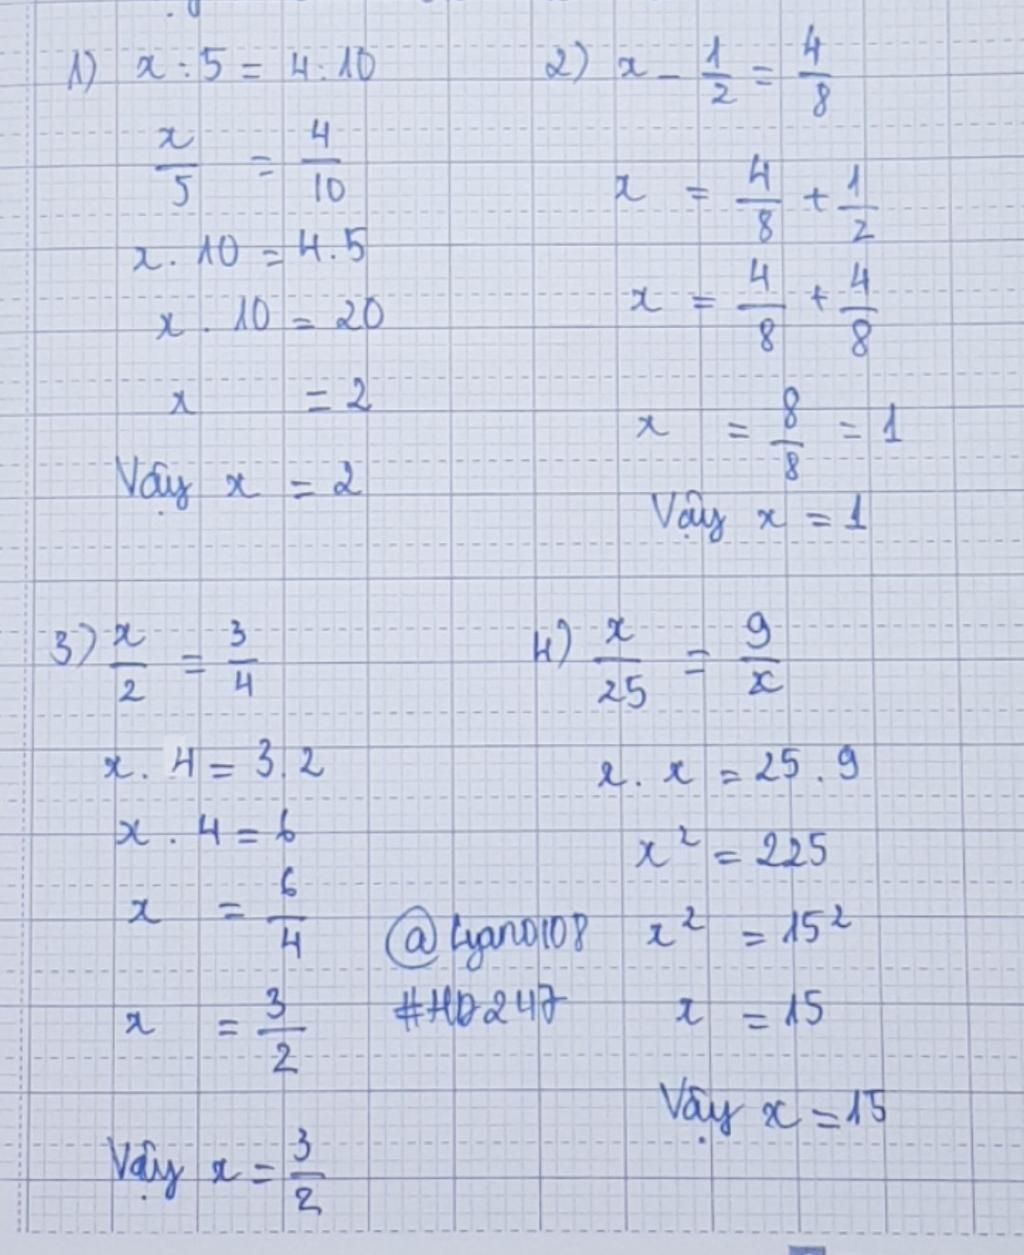 1) x : 5 = 4 : 10
x/5 = 4/10
x . 10 = 4 . 5
x . 10 = 20
x = 2
Vậy x = 2
2) x - 1/2 = 4/8
x = 4/8 + 1/2
x = 4/8 + 4/8
x = 8/8 = 1
Vậy x = 1
3) x/2 = 3/4
x . 4 = 3 . 2
x . 4 = 6
x = 6/4
x = 3/2
Vậy x = 3/2
4) x/25 = 9/x
x . x = 25 . 9
x² = 225
x² = 15²
x = 15
Vậy x = 15
#HD247